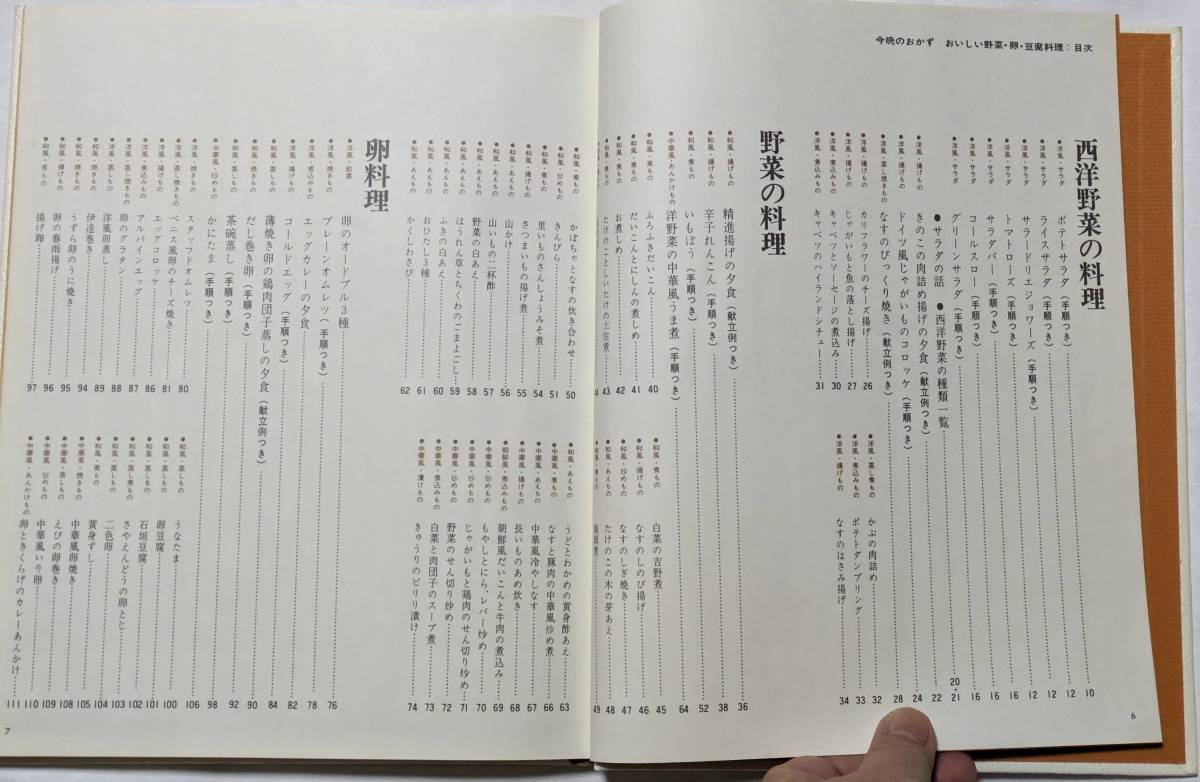 今晩のおかず　おいしい野菜・卵・豆腐料理：目次
西洋野菜の料理
●洋風・サラダ　ポテトサラダ（手順つき）……10
●洋風・サラダ　ライスサラダ（手順つき）……12
●洋風・サラダ　サラードリエジョワーズ（手順つき）……12
●洋風・サラダ　トマトローズ（手順つき）……12
●洋風・サラダ　サラダバー（手順つき）……16
●洋風・サラダ　コールスロー（手順つき）……16
●洋風・サラダ　グリーンサラダ（手順つき）……16
●サラダの話　●西洋野菜の種類一覧……20・21
●洋風・揚げもの　きのこの肉詰め揚げの夕食（献立例つき）……22
●洋風・揚げもの　ドイツ風じゃがいものコロッケ（手順つき）……24
●洋風・蒸し焼きもの　なすのびっくり焼き（献立例つき）……28
●洋風・揚げもの　カリフラワーのチーズ揚げ……26
●洋風・揚げもの　じゃがいもと魚の落とし揚げ……27
●洋風・煮込みもの　キャベツとソーセージの煮込み……30
●洋風・煮込みもの　キャベツのハイランドシチュー……31
●洋風・蒸し煮もの　かぶの肉詰め……32
●洋風・煮込みもの　ポテトダンプリング……33
●洋風・揚げもの　なすのはさみ揚げ……34
野菜の料理
●和風・揚げもの　精進揚げの夕食（献立例つき）……36
●和風・煮もの　辛子れんこん（手順つき）……38
●和風・煮もの　いもぼう（手順つき）……52
●中華風・あんかけもの　洋野菜の中華風うま煮（手順つき）……64
●和風・煮もの　ふろふきだいこん……40
●和風・煮もの　だいこんとにしんの煮しめ……41
●和風・煮もの　お煮しめ……42
●和風・煮もの　たけのことしいたけの土佐煮……43
44
●和風・煮もの　白菜の吉野煮……45
●和風・揚げもの　なすのしのび揚げ……46
●和風・炒めもの　なすのしぎ焼き……47
●和風・あえもの　たけのこの木の芽あえ……48
49
6
●和風・煮もの　かぼちゃとなすの炊き合わせ……50
●和風・炒めもの　きんぴら……51
●和風・煮もの　里いものさんしょうみそ煮……54
●和風・揚げもの　さつまいもの揚げ煮……55
山かけ……56
山いもの二杯酢……57
●和風・あえもの　野菜の白あえ……58
●和風・あえもの　ほうれん草とちくわのごまよごし……59
●和風・あえもの　ふきの白あえ……60
●和風・あえもの　おひたし3種……61
●和風・あえもの　かくしわさび……62
●和風・あえもの　うどとわかめの黄身酢あえ……63
●中華風・煮もの　なすと豚肉の中華風炒め煮……66
●中華風・あえもの　中華風冷やしなす……67
●中華風・揚げもの　長いものあめ炊き……68
●朝鮮風・煮込みもの　朝鮮風だいこんと牛肉の煮込み……69
●中華風・炒めもの　もやしとにら、レバー炒め……70
●中華風・炒めもの　じゃがいもと鶏肉のせん切り炒め……71
●中華風・炒めもの　野菜のせん切り炒め……72
●中華風・煮込みもの　白菜と肉団子のスープ煮……73
●中華風・漬けもの　きゅうりのピリリ漬け……74
卵料理
●洋風・前菜　卵のオードブル3種……76
●洋風・焼きもの　プレーンオムレツ（手順つき）……78
●洋風・煮込みもの　エッグカレーの夕食……82
●洋風・揚げもの　コールドエッグ（手順つき）……84
●和風・蒸しもの　薄焼き卵の鶏肉団子蒸しの夕食（献立例つき）……90
●和風・焼きもの　だし巻き卵（手順つき）……92
●和風・蒸しもの　茶碗蒸し（手順つき）……98
●中華風・炒めもの　かにたま（手順つき）……106
●洋風・焼きもの　スタッフドオムレツ……80
●洋風・蒸し焼きもの　ベニス風卵のチーズ焼き……81
●洋風・揚げもの　エッグロッケ……86
●洋風・煮込みもの　アルパインエッグ……87
●洋風・蒸し焼きもの　卵のグラタン……88
●洋風・蒸しもの　洋風卵蒸し……89
●和風・焼きもの　伊達巻き……94
●和風・焼きもの　うずら卵のうに焼き……95
●和風・揚げもの　卵の春雨揚げ……96
●和風・煮もの　揚げ卵……97
●和風・蒸しもの　うなたま……100
●和風・蒸しもの　卵豆腐……101
●和風・蒸しもの　石垣豆腐……102
●和風・蒸し煮もの　さやえんどうの卵とじ……103
●和風・蒸しもの　二色卵……104
●和風・煮もの　黄身ずし……105
●中華風・焼きもの　中華風卵焼き……107
●中華風・蒸しもの　えびの卵巻き……108
●中華風・炒めもの　中華風いり卵……109
●中華風・あんかけもの　卵ときくらげのカレーあんかけ……111
110
7